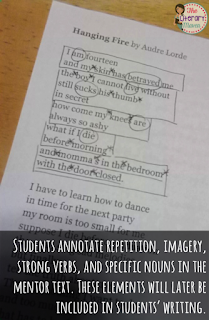 The
Literary
Maven
Hanging Fire by Audre Lorde
I am fourteen
and my skin has betrayed me
the boy I cannot live without
still sucks his thumb
in secret
how come my knees are
always so ashy
what if I die
before morning
and momma's in the bedroom
with the door closed.
I have to learn how to dance
in time for the next party
my room is too small for me
suppose I die before
STUDENTS ANNOTATE REPETITION, IMAGERY,
STRONG VERBS, AND SPECIFIC NOUNS IN THE
MENTOR TEXT. THESE ELEMENTS WILL LATER BE
INCLUDED IN STUDENTS' WRITING.